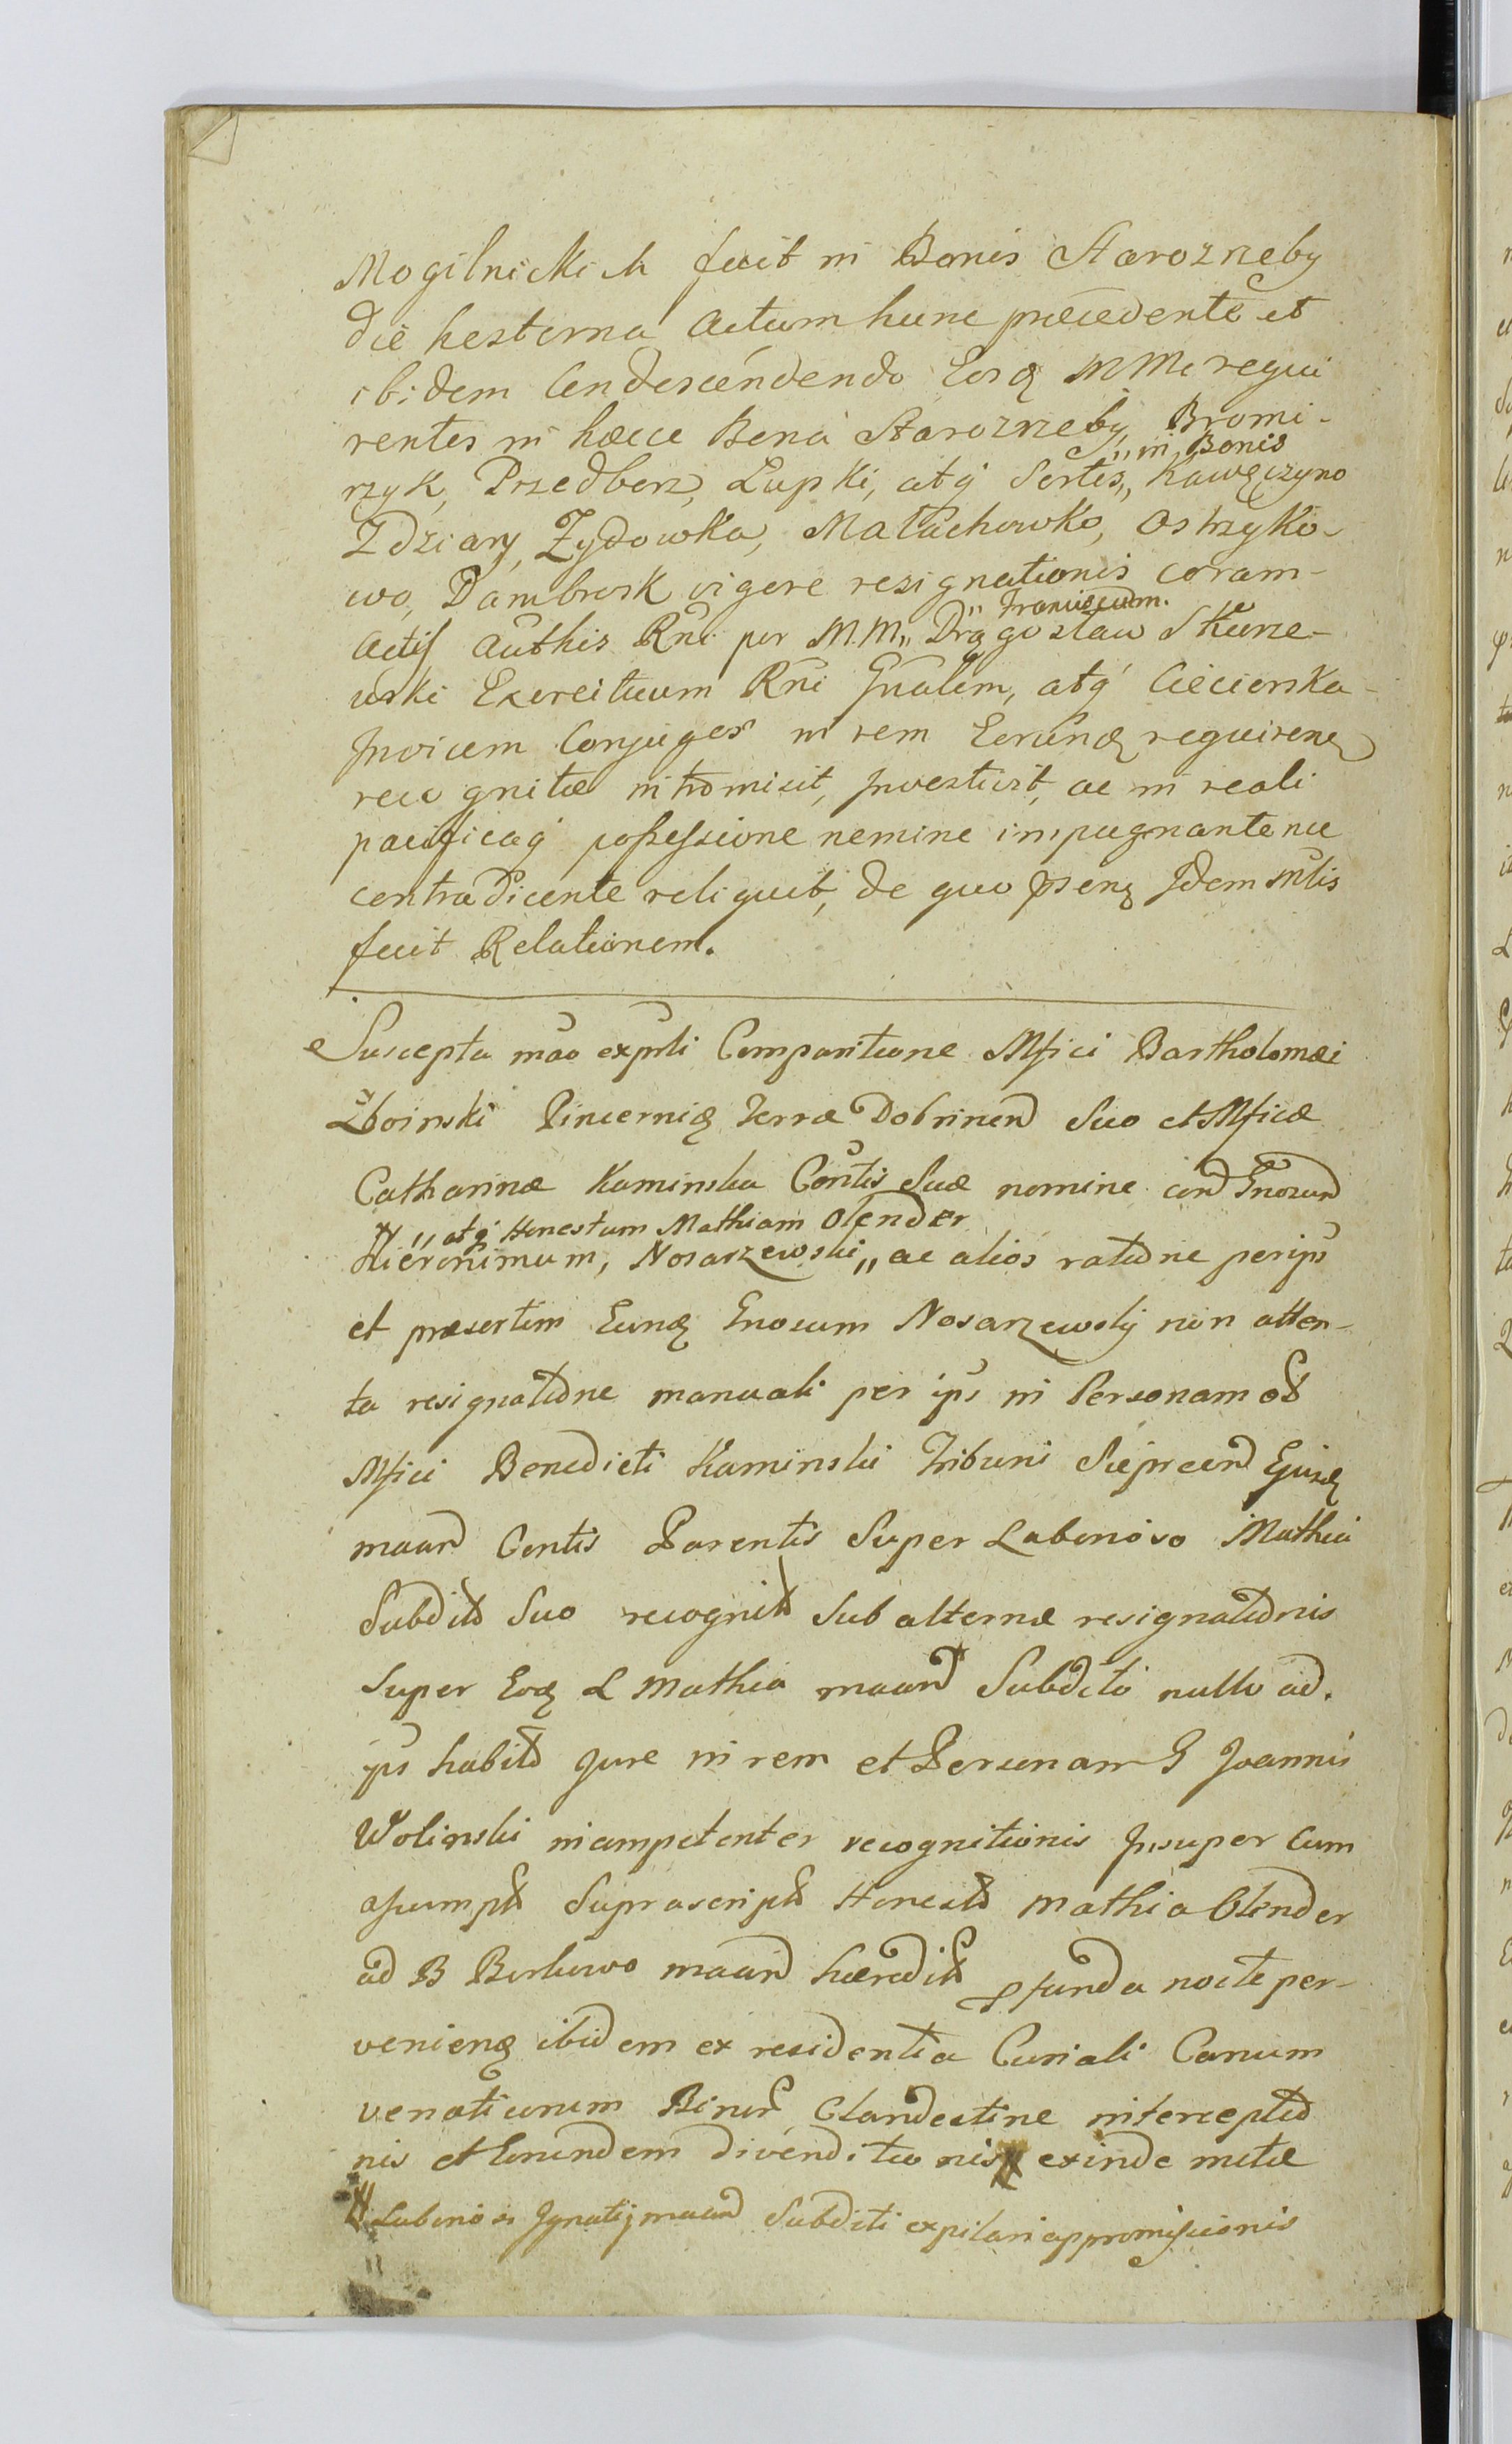 Mogilnickich fecit in Bonis Starozreby
die hesterna actum hunc præcedente et
ibidem Condescendendo Eosq MM requi
rentes in hæcce Bona Starozreby, Bromi-
„in Bonis
rzyk, Przedbory, Łupki, atq Sortes„ Kawęczyno
Zdziary, Zydowka, Małachowko, Ostrzyko-
wo, Dambrusk vigore resignationis coram-
„Franciscum.
Actis Authis Rni per M.M.„ Dragosław Skurze-
wski Exercituum Rni Gnalem, atq Ciecierska-
Invicem Conjuges in rem Eorundq requirenq
recognitæ intromisit, Investivit, ac in reali
pacificaq possessione nemine impugnante nec
contradicente reliquit, de quo psenq Idem Mlis
fecit Relationem.
Suscepta mao expsti Comparitione Mfici Bartholomæi
Zboinski Pincerniq Terræ Dobrinen Suo et Mficæ
Catharinæ Kaminska Contis Suæ nomine con Gnosum
„atq Honestum Mathiam Olender
Hieronimum, Nosarzewski„ ac alios ratione per ips
et præsertim Eunq Gnosum Nosarzewski non atten-
ta resignatione manuali per ips in Personam o
Mfici Benedicti Kaminski Tribuni Sieprcen Ejusq
maan Contis Parentis Super Laborioso Mathia
Subdito Suo recognito Sub alternæ resignationis
Super Eoq L Mathia maan Subdito nullo ad.
ips habito Jure in rem et Personam G Joannis
Wolinski incompetenter recognitionis Insuper Cum
assumpto Suprascripto Honesto Mathia Olender
ad B Borkowo maan hæredit pfunda nocte per-
venienq ibidem ex residentia Curiali Canum
venaticorum Binor Clandestine interceptio
nis et Eorundem divenditionis # exinde metæ
# Laboriosi Ignatij maan Subditi expilari appromissionis